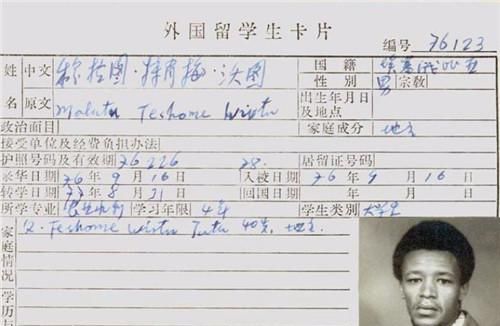 外国留学生卡片
编号 76123
姓 中文 穆拉图·特肖梅·沃图 国籍 埃塞俄比亚
性别 男 宗教
名 原文 Mulatu Teshome Wirtu 出生年月日及地点
政治面目 家庭成分 地主
接受单位及经费负担办法
护照号码及有效期 76226 78. 居留证号码
来华日期 76年9月16日 入校日期 76年9月16日
转学日期 77年8月31日 回国日期 年 月 日
所学专业 学习年限 4年 学生类别 大学生
家庭情况 父. Teshome Wirtu 40岁, 地主.
学历